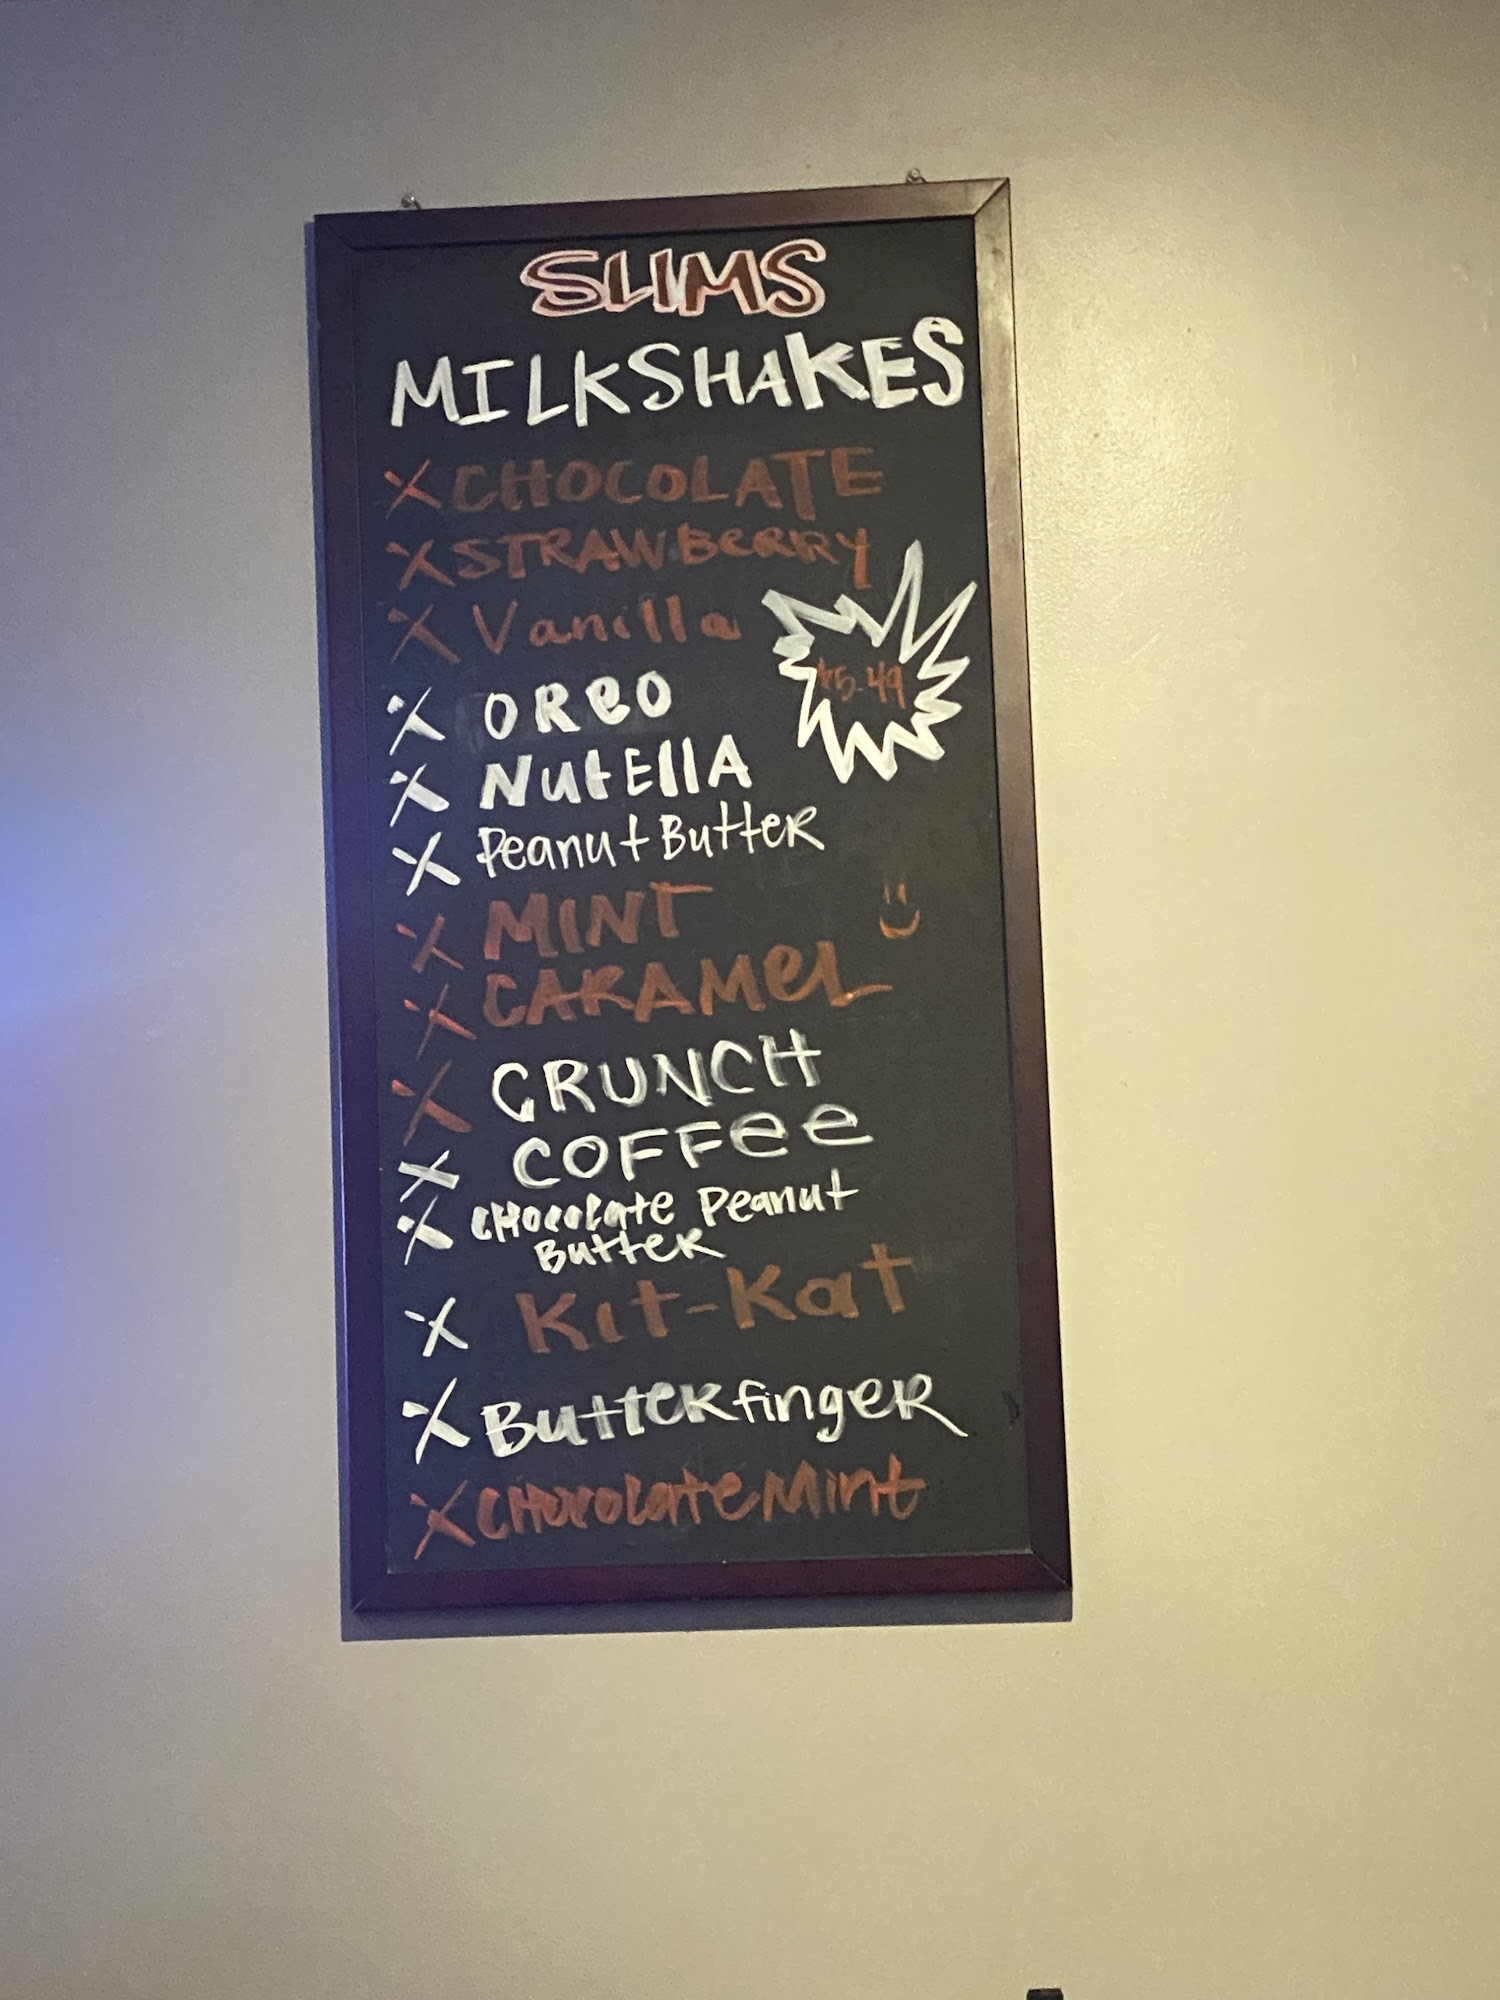 SLIMS
MILKSHAKES
X CHOCOLATE
X STRAWBERRY
X Vanilla
X OREO
$5.49
X NutEllA
X Peanut Butter
X MINT
X CARAMEL
X CRUNCH
X COFFee
X CHocolate Peanut
Butter
X Kit-Kat
X Butterfinger
X CHocolate Mint